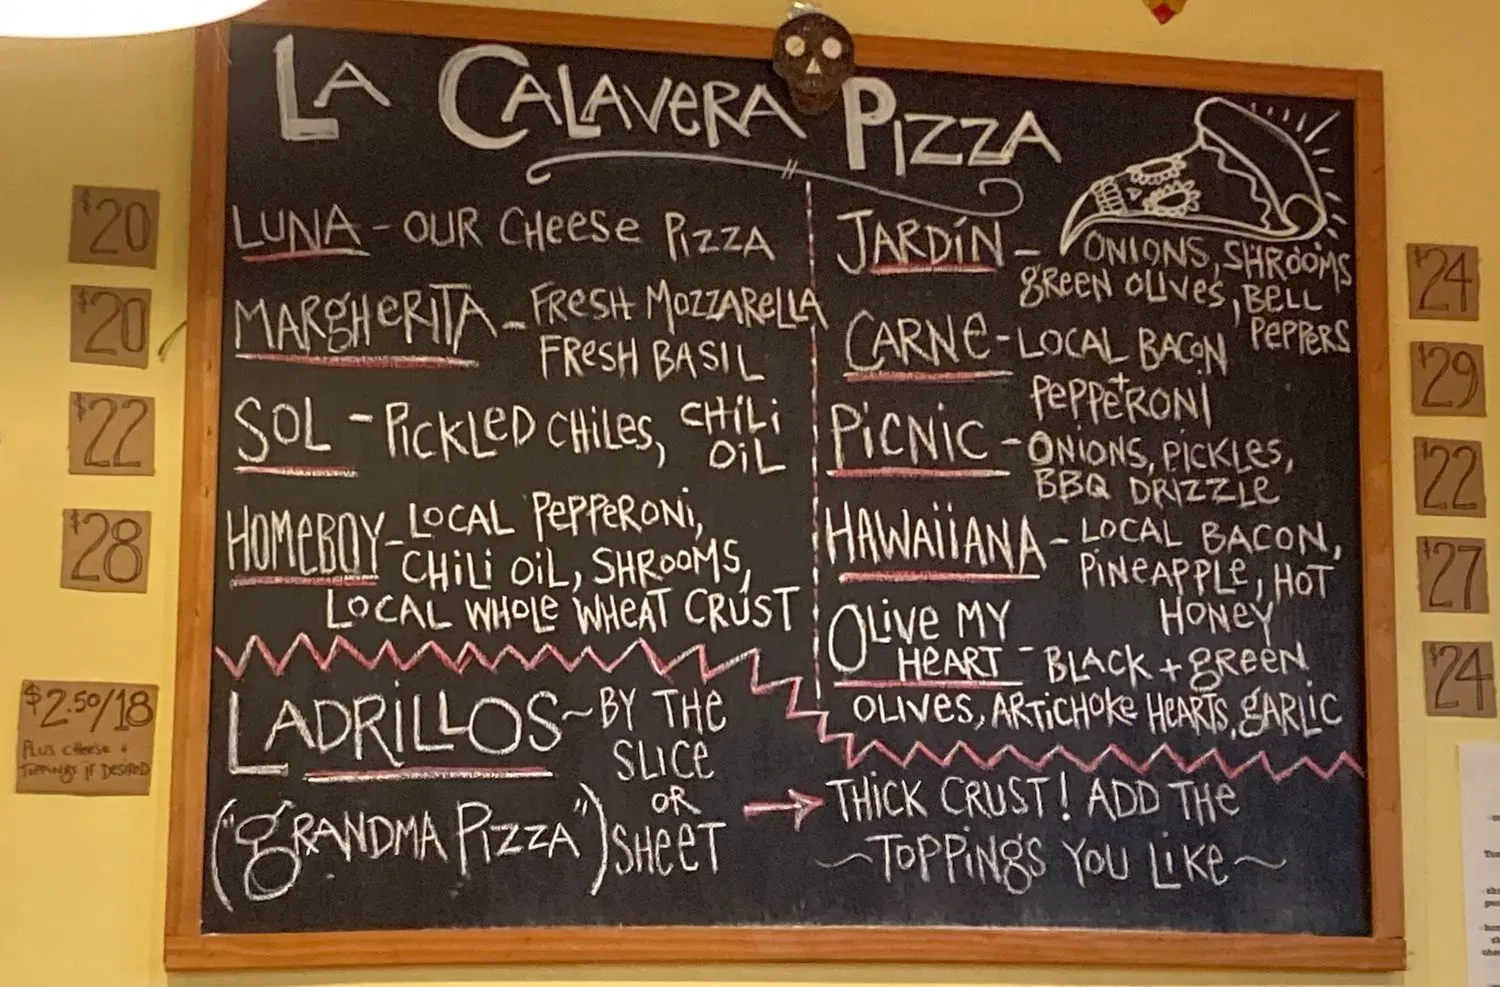 LA CALAVERA PIZZA
$20
LUNA - OUR CHEESE PIZZA
$20
MARGHERITA - FRESH MOZZARELLA
FRESH BASIL
$22
SOL - PICKLED CHILES, CHILI
OIL
$28
HOMEBOY - LOCAL PEPPERONI,
CHILI OIL, SHROOMS,
LOCAL WHOLE WHEAT CRUST
JARDÍN - ONIONS, SHROOMS
GREEN OLIVES, BELL
PEPPERS
$24
CARNE - LOCAL BACON
+
PEPPERONI
$29
PICNIC - ONIONS, PICKLES,
BBQ DRIZZLE
$22
HAWAIIANA - LOCAL BACON,
PINEAPPLE, HOT
HONEY
$27
OLIVE MY
HEART - BLACK + GREEN
OLIVES, ARTICHOKE HEARTS, GARLIC
$24
$2.50/18
PLUS CHEESE +
TOPPINGS IF DESIRED
LADRILLOS ~ BY THE
SLICE
OR
SHEET
("GRANDMA PIZZA")
→ THICK CRUST! ADD THE
~ TOPPINGS YOU LIKE ~